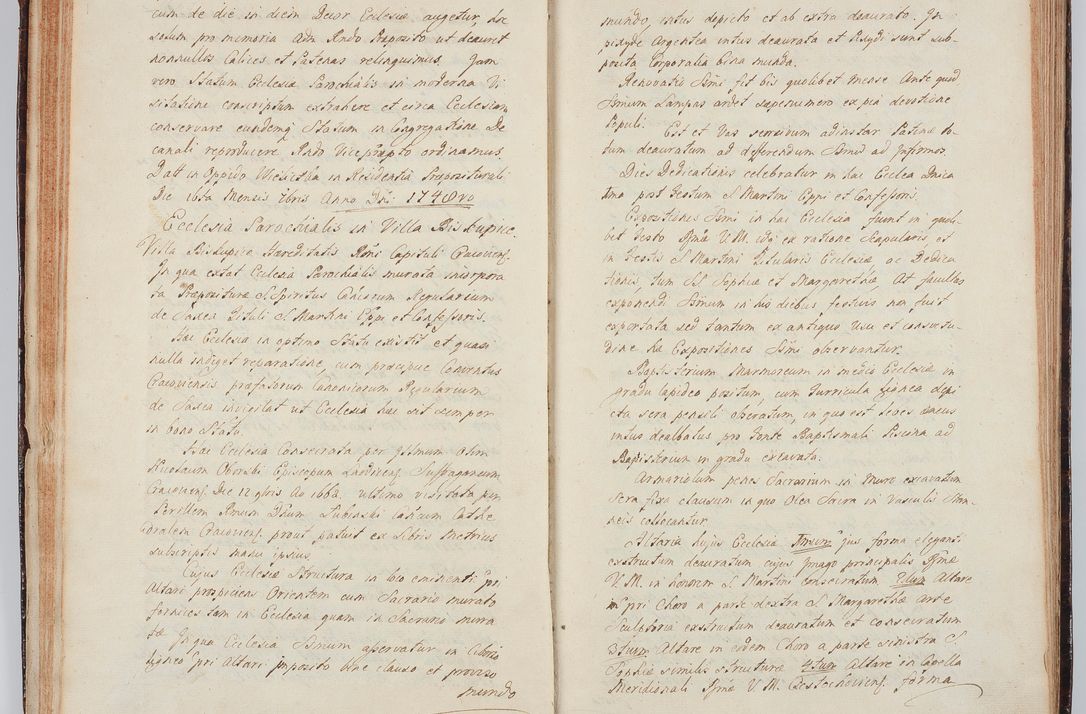 cum de die in diem Decor Ecclesiæ augetur, hoc
solum pro memoria Adm Rndo Præposito ut deauret
nonnullos Calices et Patenas relinquimus. Quam
vero Statum Ecclesiæ Parochialis in moderna Vi
sitatione conscriptum extrahere et circa Ecclesiam
conservare eundemq Statum in Congregatione De
canali reproducere Rndo Vicepræpto ordinamus.
Datt in Oppido in Residentia Præpositurali
Die 16ta Mensis 7bris Anno Dni 1748vo
Ecclesia Parochialis in Villa Biskupice.
Villa Biskupice Hæreditatis Rdmi Capituli Cracovien.
In qua extat Ecclesia Parochialis murata incorpora
ta Præposituræ S. Spiritus Canicorum Regularium
de Saxia Tituli S. Martini Eppi et Confessoris.
Hæc Ecclesia in optimo Statu existit et quasi
nulla indiget reparatione, cum præcipue Conventus
Cracoviensis præfatorum Canonicorum Regularium
de Saxia invigilat ut Ecclesia hæc sit semper
in bono Statu.
Hæc Ecclesia Consecrata per Illmum olim
Nicolaum Oborski Episcopum Laodicen. Suffraganeum
Cracovien. Die 12 9bris Ao 1662. ultimo visitata per
Perillem Rmum Dnum Lubinski Canicum Cathe
dralem Cracovien. prout patuit ex Libris Metrices
subscriptis manu ipsius.
Cujus Ecclesiæ Structura in loco eminenti pri
Altare prospiciens Orientem cum Sacrario murato
fornices tam in Ecclesia quam in Sacrario mura
tæ. In qua Ecclesia Smum asservatur in Ciborio
ligneo pri Altari imposito bene clauso et proviso
mundo
mundo, intus depicto et ab extra deaurato. In
pixyde Argentea intus deaurata et Pixydi sunt sub-
posita Corporalia bina munda.
Renovatio Smi fit bis quolibet mense Ante quod
Smum Lampas ardet sæpenumero ex pia devotione
Populi.
Est et Vas scrvibum adinstar Patinæ to
tum deauratum ad defferendum Smum ad Infirmos.
Dies Dedicationis celebratur in hac Ecclea Dnica
1ma post Festum S Martini Eppi et Confessoris.
Expositiones Smi in hac Ecclesia fiunt in quoli
bet Festo Bmæ V.M. idq ex ratione Scapularis, et
in Festis S Martini Titularis Ecclesiæ ac Dedica
tionis, tum SS Sophiæ et Margarethæ At facultas
exponendi Smum in his diebus festivis non fuit
exportata sed tantum ex antiquo Usu et consvetu-
dine hæ Expositiones Smi observantur.
Baptisterium Marmoreum in medio Ecclesiæ in
gradu lapideo positum, cum turricula lignea depi
cta sera pensili obseratum, in quo est lebes æneus
intus dealbatus pro Fonte Baptismali Piscina ad
Baptisterium in gradu excavata.
Armariolum penes Sacrarium in Muro excavatum
sera fixa clausum in quo Olea Sacra in Vasculis Stan
neis collocantur
Altaria hujus Ecclesiæ 1mum Majus forma eleganti
exstructum deauratum cujus Imago principalis Bmæ
V.M. in honorem S. Martini consecratum 2dum Altare
in pri Choro a parte dextra S. Margarethæ arte
Sculptoria exstructum deauratum et consecratum
3tium Altare in eodem Choro a parte sinistra S.
Sophiæ similis structuræ 4tum Altare in Capella
Meridionali Bmæ V. M. Cestochovien. forma